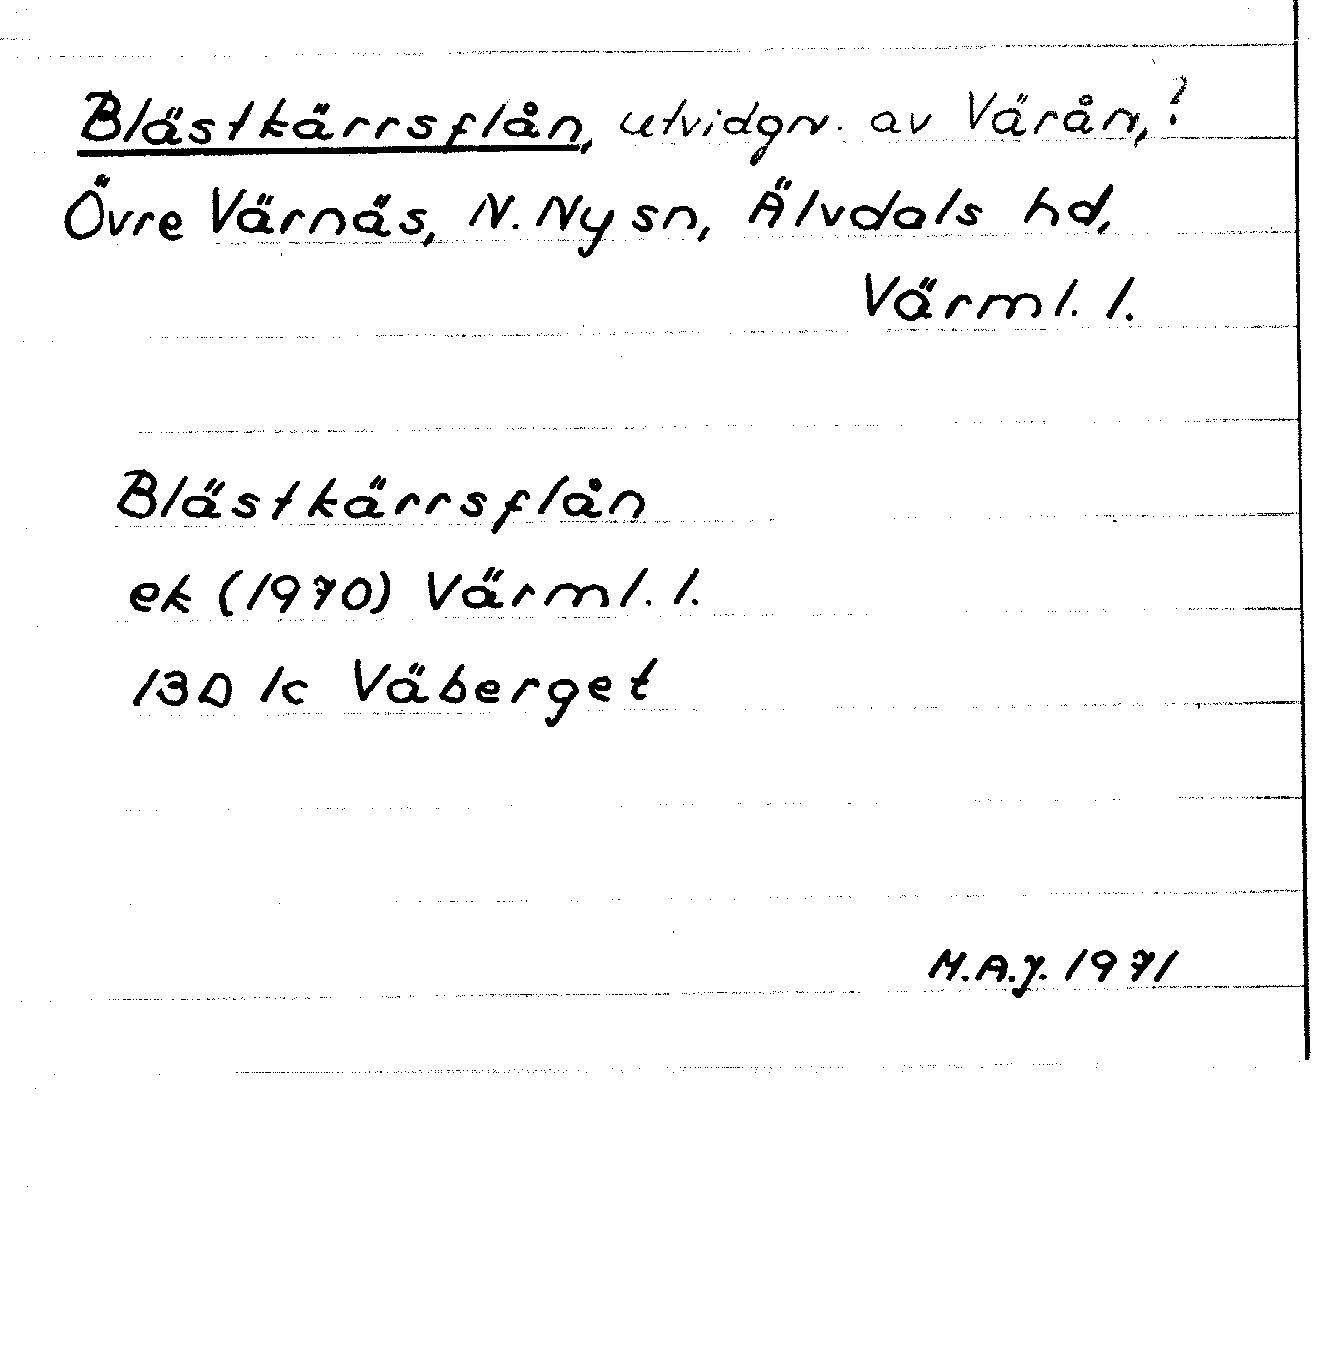 Blästkärrsflån, utvidgn. av Värån,?
Övre Värnäs, N. Ny sn, Älvdals hd,
Värml. l.
Blästkärrsflån
ek (1970) Värml. l.
13D 1c Väberget
M.A.J. 1971